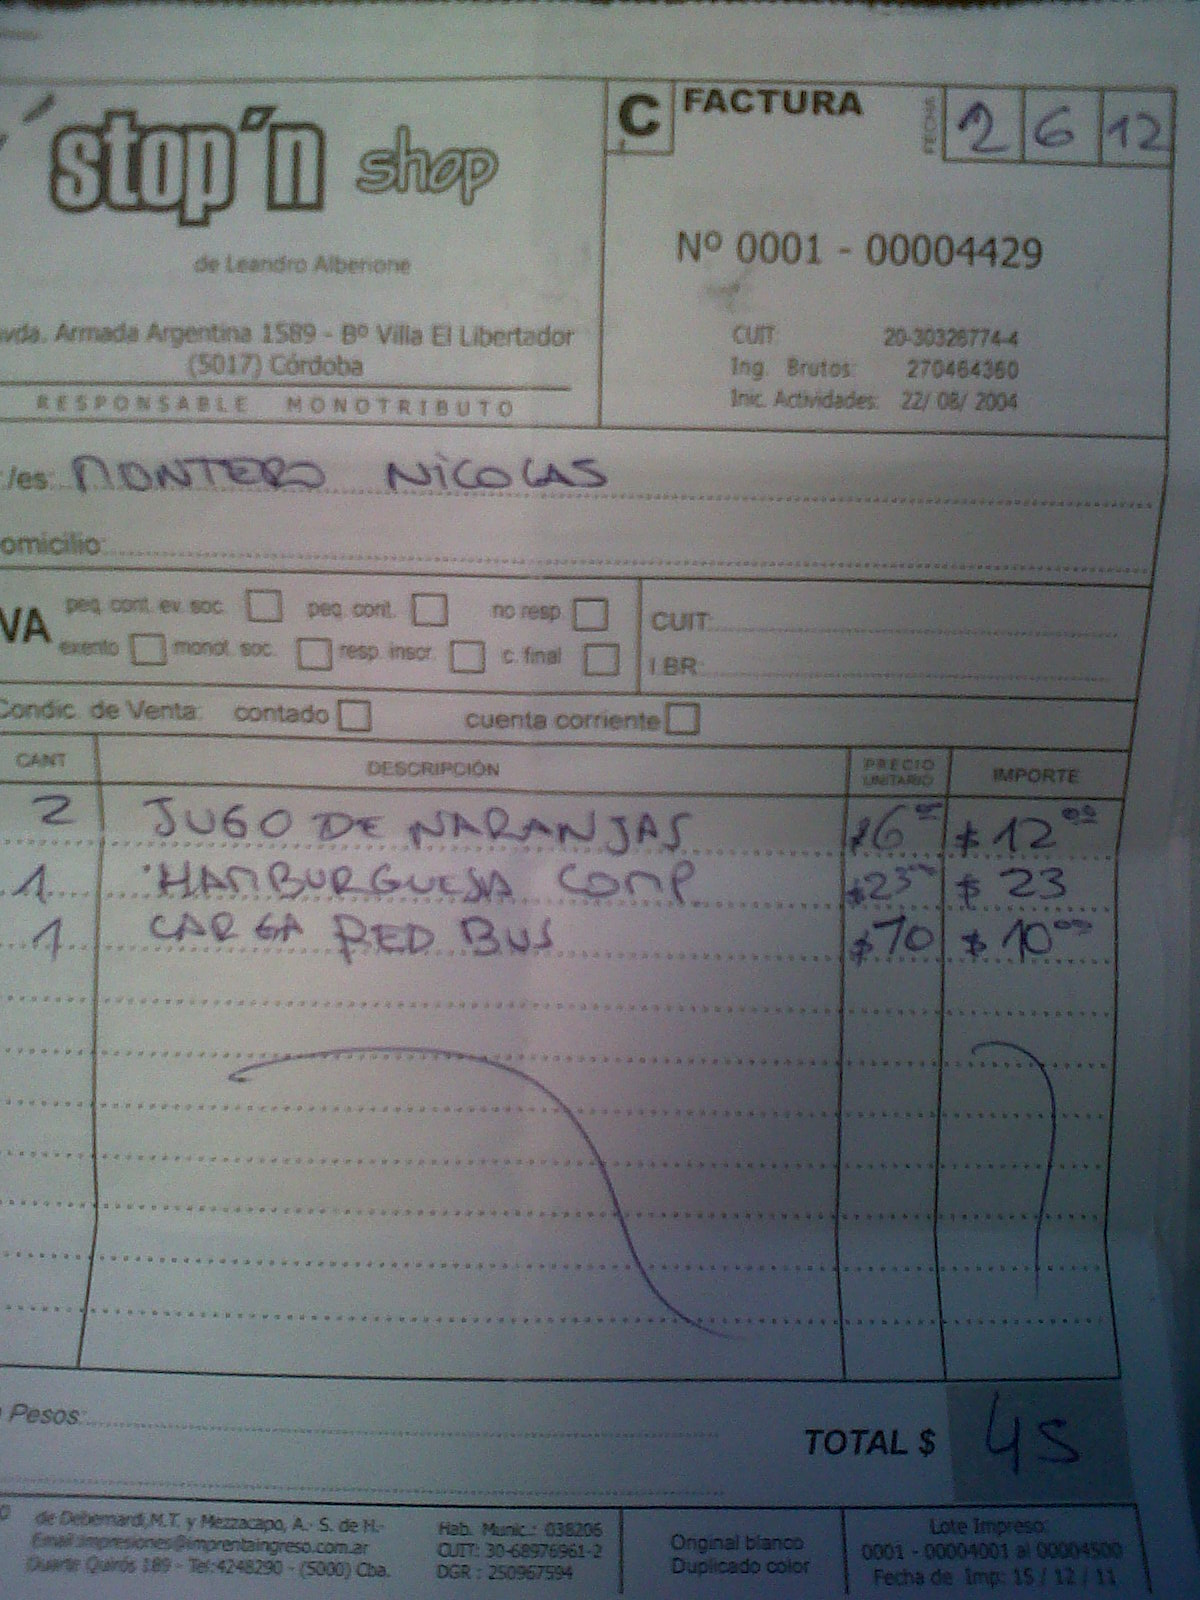 stop'n shop
C FACTURA FECHA 2 6 12
de Leandro Alberione
Nº 0001 - 00004429
vda. Armada Argentina 1589 - Bº Villa El Libertador
(5017) Córdoba
RESPONSABLE MONOTRIBUTO
CUIT 20-30326774-4
Ing. Brutos: 270464360
Inic. Actividades: 22/ 08/ 2004
/es: MONTERO NICOLAS
omicilio:
VA peq. cont. ev. soc. peq. cont. no resp.
exento monot. soc. resp. inscr. c. final
CUIT:
I.BR:
Condic. de Venta: contado cuenta corriente
CANT DESCRIPCIÓN PRECIO UNITARIO IMPORTE
2 JUGO DE NARANJAS $6 $12 00
1 HAMBURGUESA COMP. $23 $23
1 CARGA RED BUS $10 $10 00
Pesos:
TOTAL $ 45
de Debernardi, M.T. y Mezzacapo, A.- S. de H.-
Email:impresiones@imprentaingreso.com.ar
Duarte Quirós 189 - Tel:4248290 - (5000) Cba.
Hab. Munic.: 038206
CUIT: 30-68976961-2
DGR : 250967594
Original blanco
Duplicado color
Lote Impreso:
0001 - 00004001 al 00004500
Fecha de Imp: 15 / 12 / 11